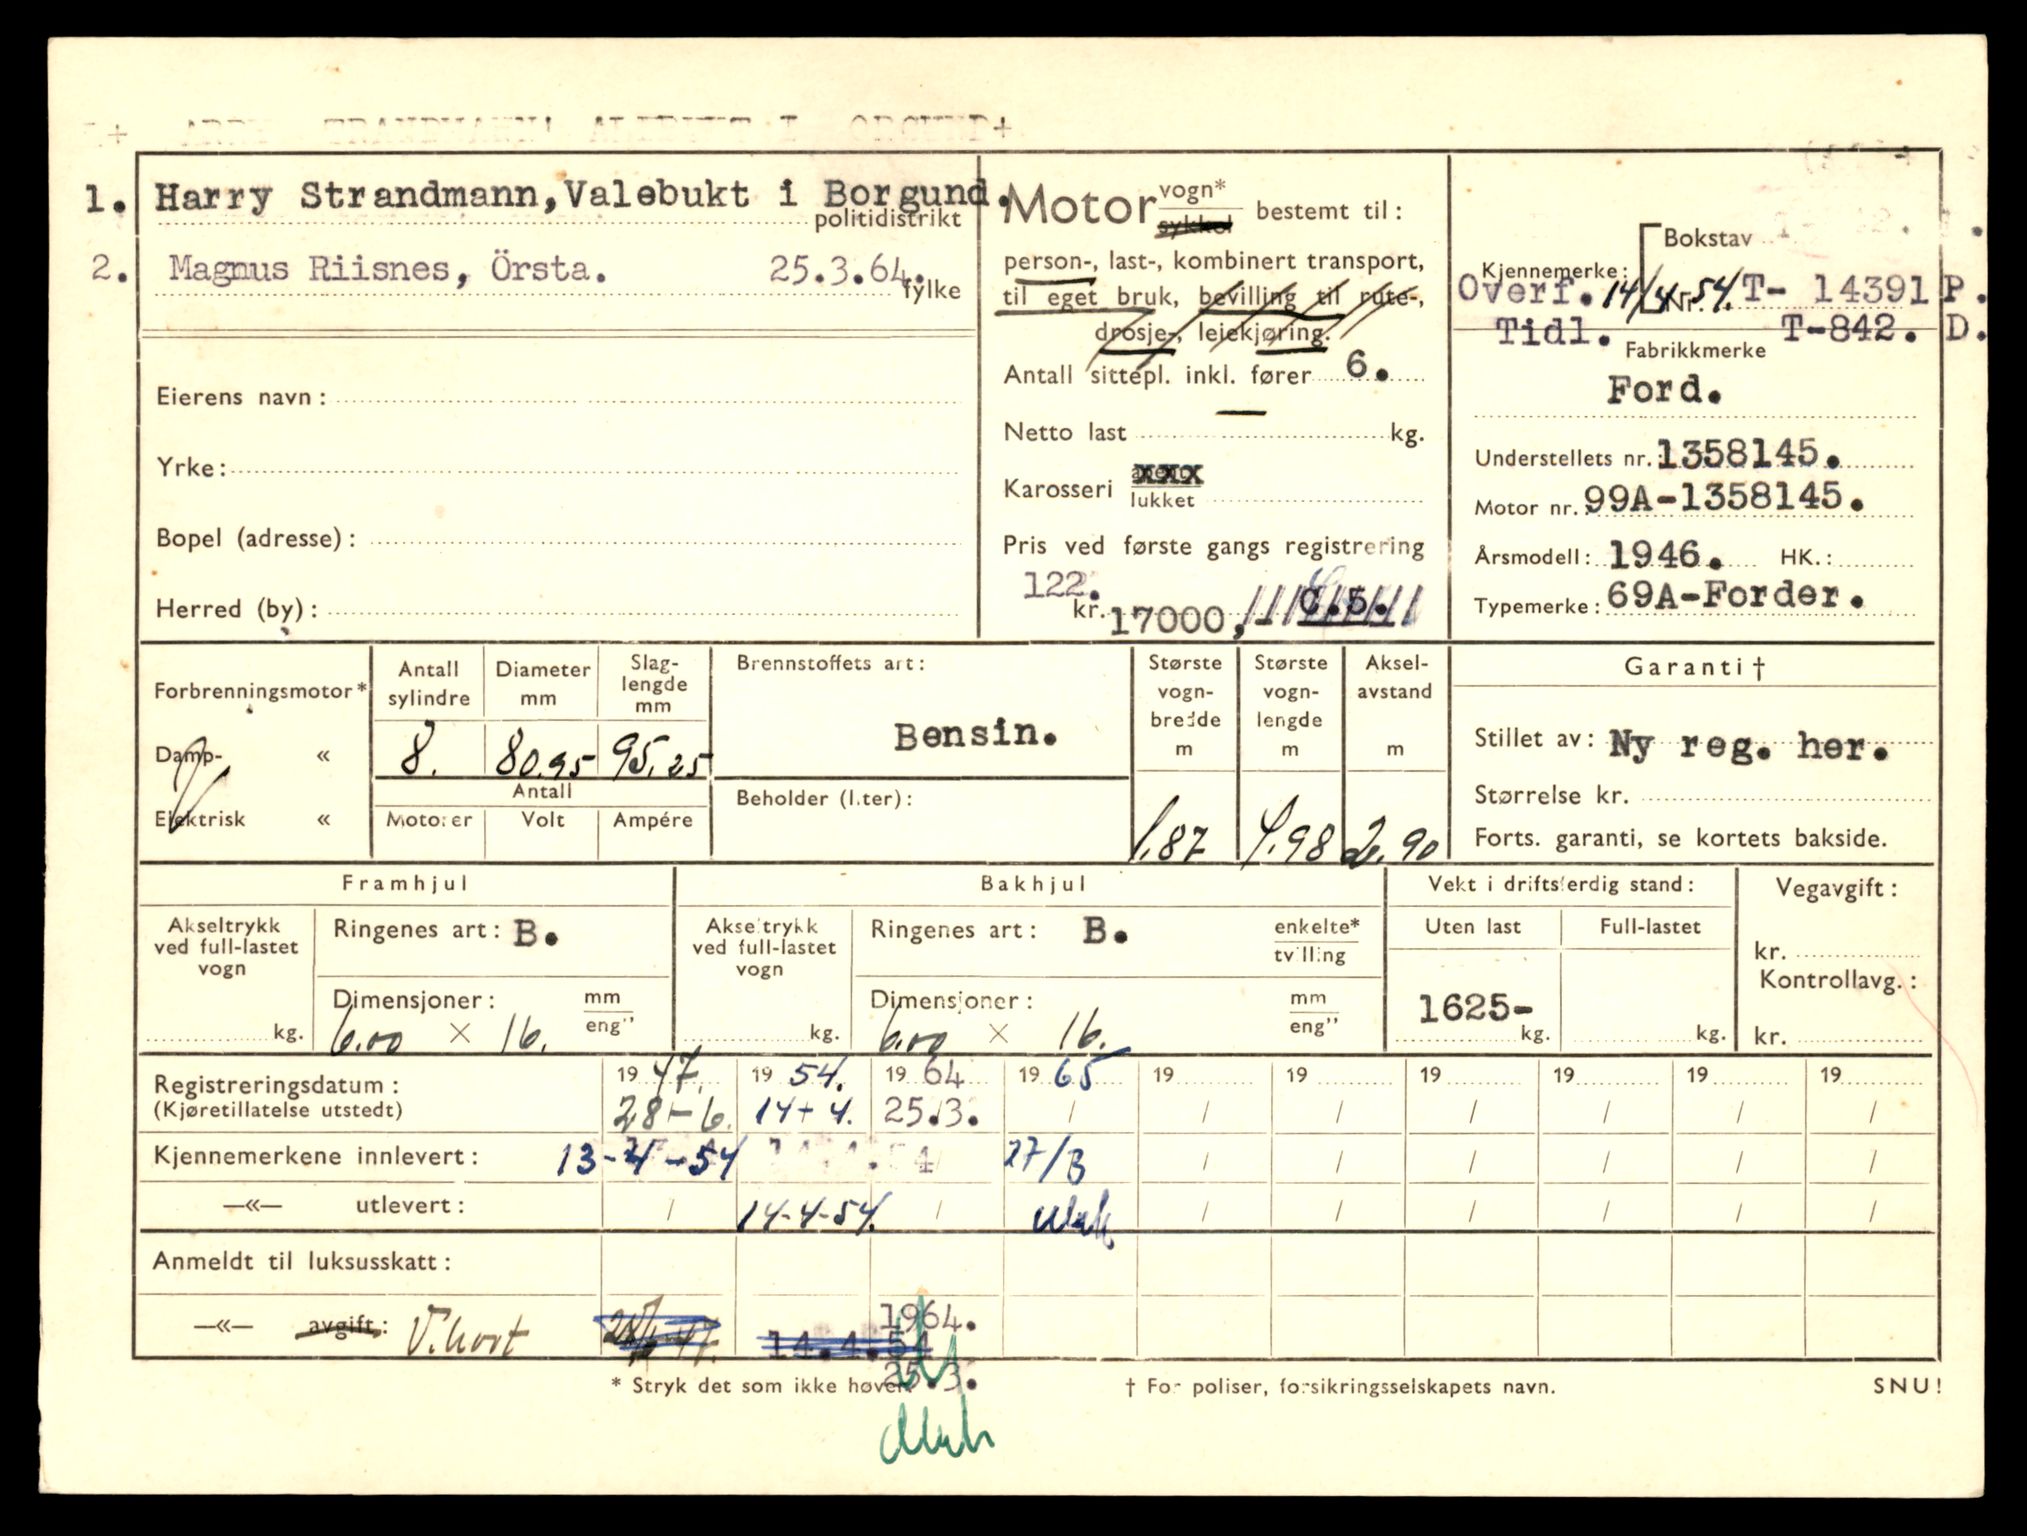 1. Harry Strandmann, Valebukt i Borgund.
politidistrikt
2. Magnus Riisnes, Örsta. 25.3.64.
fylke
Eierens navn:
Yrke:
Bopel (adresse):
Herred (by):
Motor vogn* sykkel bestemt til:
person-, last-, kombinert transport,
til eget bruk, bevilling til rute-,
drosje-, leiekjøring.
Antall sittepl. inkl. fører 6.
Netto last — kg.
Karosseri
lukket
Pris ved første gangs registrering
122.
kr. 17000,
Bokstav
Kjennemerke:
Overf. 14/4 Nr. 54. T- 14391 P.
Tidl. T-842. D.
Fabrikkmerke
Ford.
Understellets nr.: 1358145.
Motor nr.: 99A-1358145.
Årsmodell: 1946. HK.:
Typemerke: 69A-Forder.
Forbrenningsmotor*
Damp- «
Elektrisk «
Antall sylindre
Diameter mm
Slag-lengde mm
8. 80.95 95.25
Antall
Motorer Volt Ampére
Brennstoffets art:
Bensin.
Beholder (liter):
Største vogn-bredde m
Største vogn-lengde m
Aksel-avstand m
1.87 4.98 2.90
Garanti †
Stillet av: Ny reg. her.
Størrelse kr.
Forts. garanti, se kortets bakside.
Framhjul
Akseltrykk
ved full-lastet
vogn
kg.
Ringenes art: B.
Dimensjoner: mm
eng''
6.00 × 16.
Bakhjul
Akseltrykk
ved full-lastet
vogn
kg.
Ringenes art: B. enkelte*
tvilling
Dimensjoner: mm
eng''
6.00 × 16.
Vekt i driftsferdig stand:
Uten last Full-lastet
1625-
kg. kg.
Vegavgift:
kr.
Kontrollavg.:
kr.
Registreringsdatum: 19 47. 19 54. 19 64 19 65 19 19 19 19 19 19
(Kjøretillatelse utstedt) 28-6. 14-4. 25.3. / / / / / / /
Kjennemerkene innlevert: 13-4-54 27/3 / / / / / /
—«— utlevert: / 14-4-54. / / / / / / /
Anmeldt til luksusskatt:
1964.
—«— avgift: V.kort 14.4.54
25.3.
* Stryk det som ikke høver. † For poliser, forsikringsselskapets navn. SNU!